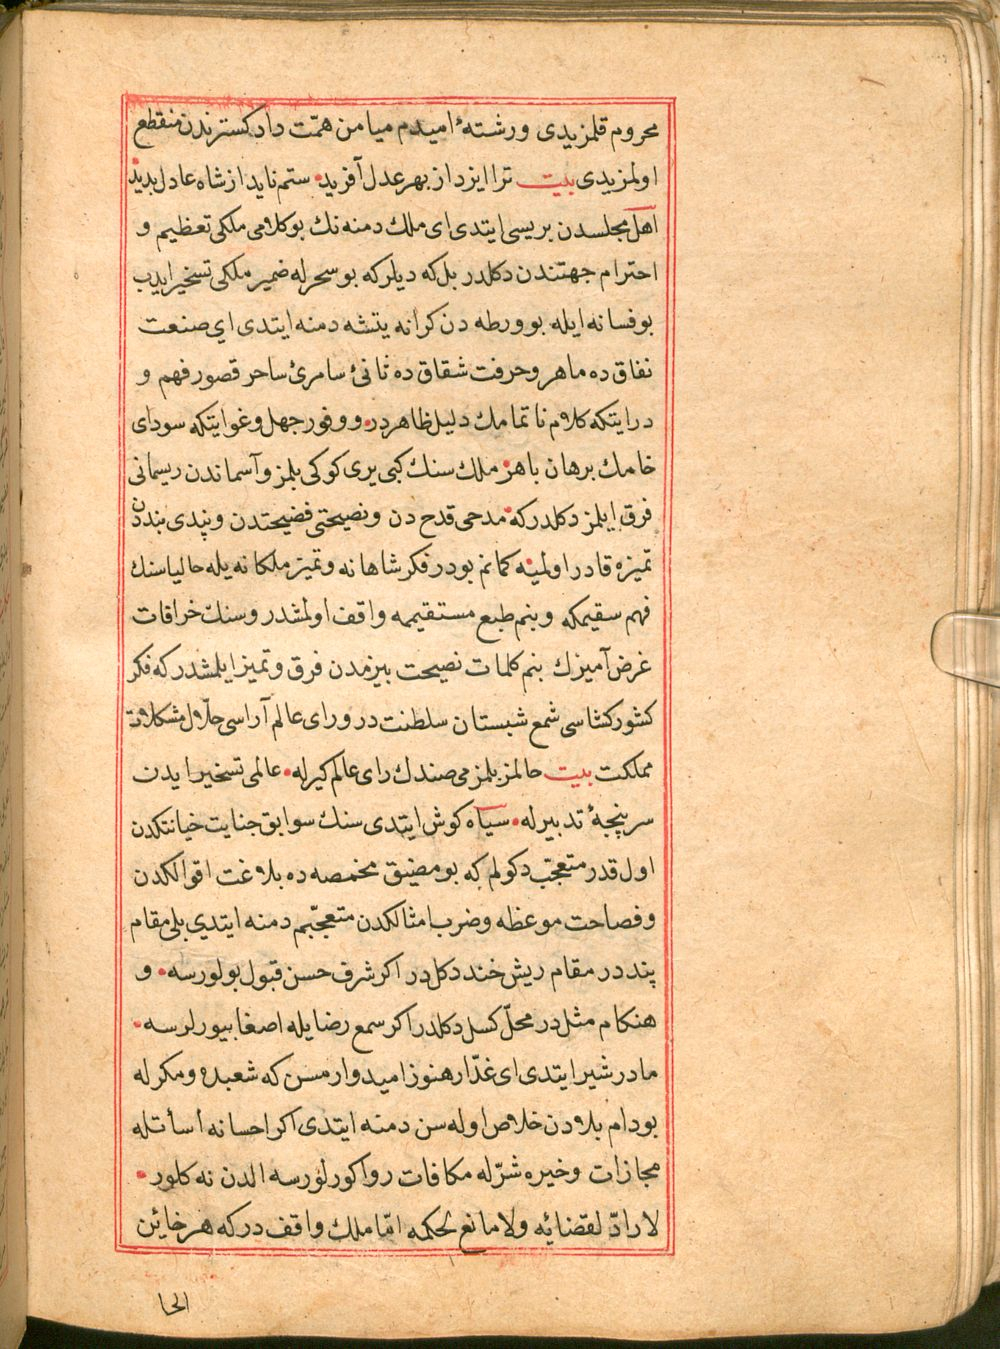 محروم قلمزیدی ورشتهٔ امیدم میامن همّت دادکسترندن منقطع
اولمزیدی بیت ترا ایزد از بهر عدل آفرید ستم ناید از شاه عادل بدید
اهل مجلسدن بریسی ایتدی ای ملك دمنه نك بو كلامی ملكی تعظیم و
احترام جهتندن دكلدر بل كه دیلر كه بو سحرله ضمیر ملكی تسخیر ایدب
بو فسانه ایله بو ورطه دن كرانه یتشه دمنه ایتدی ای صنعت
نفاق ده ماهر وحرفت شقاق ده ثانئ سامرئ ساحر قصور فهم و
درایتكه كلام ناتمامك دلیل ظاهر در ووفور جهل وغوایتكه سودای
خامك برهان باهر ملك سنك كبی یری كوكی بلمز وآسماندن ریسمانی
فرق ایلمز دكلدر كه مدحی قدح دن ونصیحتی فضیحتدن وپندی بنددن
تمیزه قادر اولمیه كمانم بودر فكر شاهانه وتمیز ملكانه یله حالیا سنك
فهم سقیمكه وبنم طبع مستقیمه واقف اولمشدر وسنك خرافات
غرض آمیزك بنم كلمات نصیحت بیزمدن فرق وتمیز ایلمشدر كه فكر
كشوركشاسی شمع شبستان سلطنت در ورای عالم آراسی حلّال مشكلات
مملكت بیت حالمز بلمزمی صندك رای عالم كیرله عالمی تسخیر ایدن
سرپنجهٔ تدبیرله سیاه كوش ایتدی سنك سوابق جنایت خیانتكدن
اول قدر متعجّب دكولم كه بو مضیق مخمصه ده بلاغت اقوالكدن
وفصاحت موعظه وضرب امثالكدن متعجّبم دمنه ایتدی بلی مقام
پند در مقام ریش خند دكلدر اكر شرف حسن قبول بولورسه و
هنكام مثل در محلّ كسل دكلدر اكر سمع رضایله اصغا بیورلرسه
مادر شیر ایتدی ای غدّار هنوز امیدوارمسن كه شعبده ومكرله
بو دام بلادن خلاص اوله سن دمنه ایتدی اكر احسانه أسأتله
مجازات وخیره شرّله مكافات روا كورلورسه الدن نه كلور
لا رادّ لقضائه ولا مانع لحكمه امّا ملك واقف در كه هر خائن
الخا